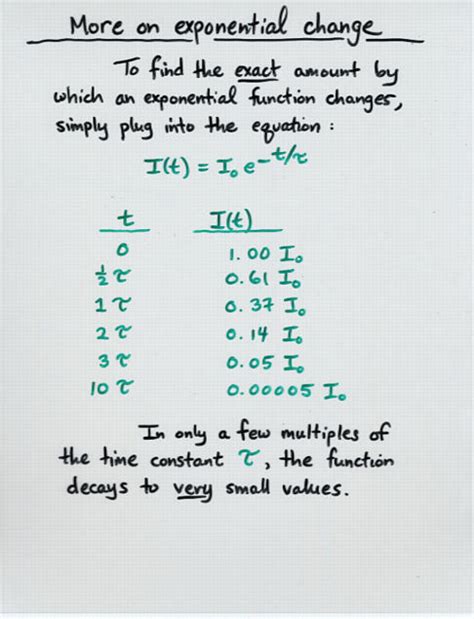 More on exponential change
To find the exact amount by
which an exponential function changes,
simply plug into the equation :
I(t) = I₀ e^-t/τ
t I(t)
0 1.00 I₀
½ τ 0.61 I₀
1 τ 0.37 I₀
2 τ 0.14 I₀
3 τ 0.05 I₀
10 τ 0.00005 I₀
In only a few multiples of
the time constant τ, the function
decays to very small values.